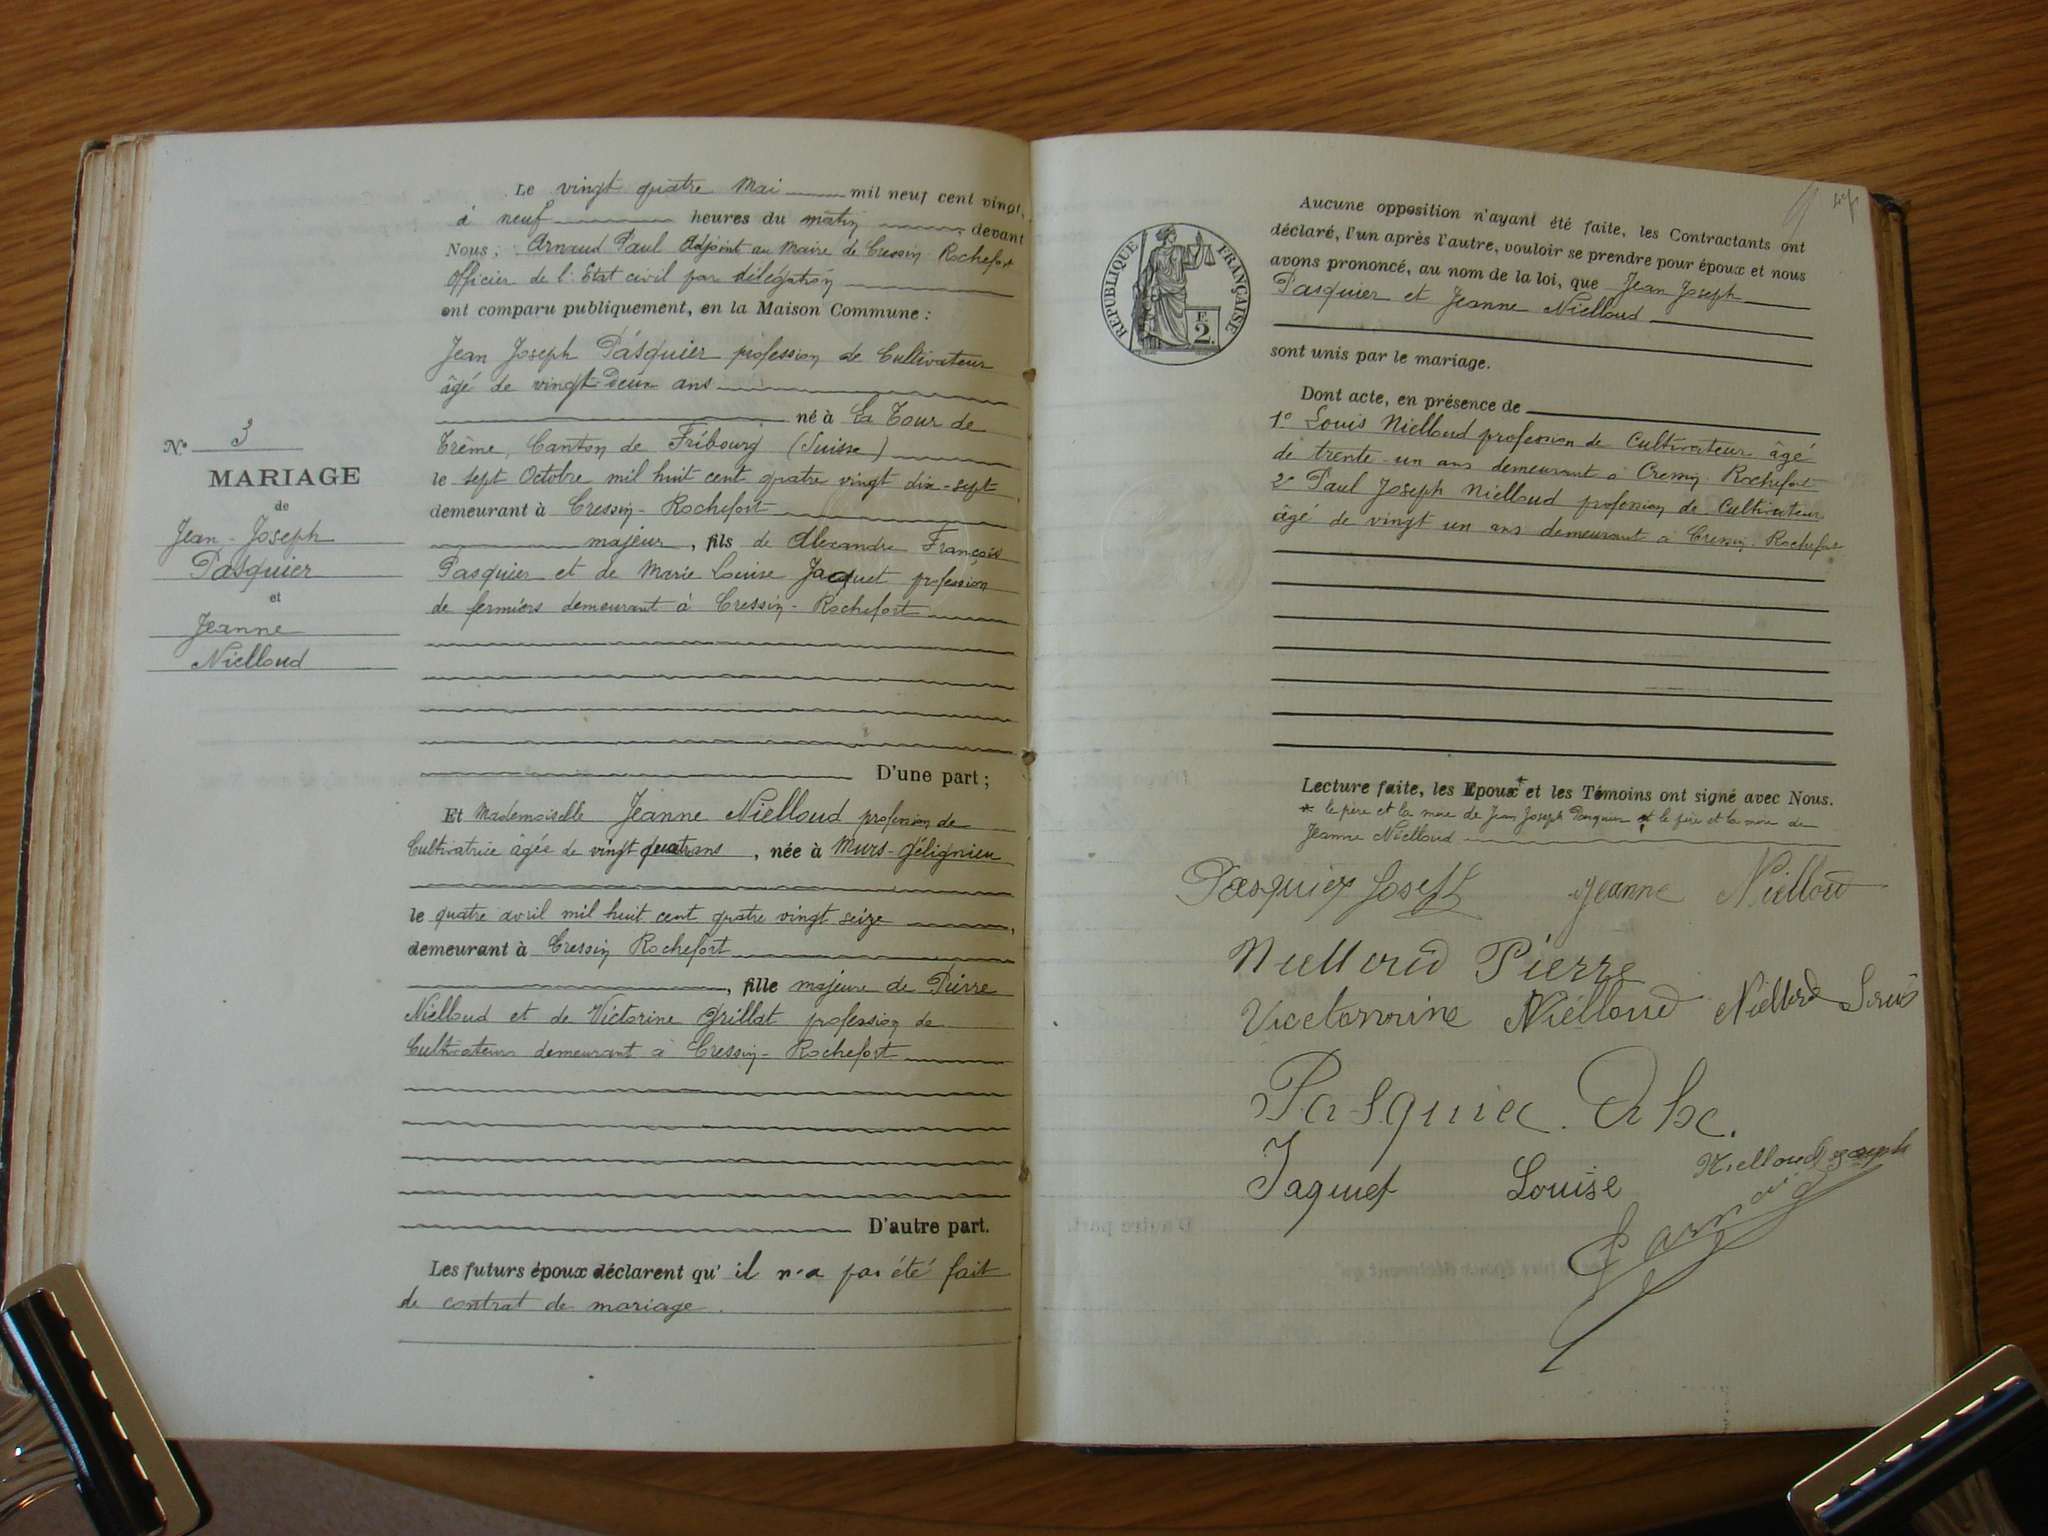 Le vingt quatre Mai mil neuf cent vingt,
à neuf heures du matin, devant
Nous, Arnaud Paul Adjoint au Maire de Cressin Rochefort
Officier de l'Etat civil par délégation
ont comparu publiquement, en la Maison Commune :
Jean Joseph Pasquier profession de Cultivateur
âgé de vingt-Deux ans
né à La Tour de
Trême, Canton de Fribourg (Suisse)
le sept Octobre mil huit cent quatre vingt dix-sept
demeurant à Cressin-Rochefort
majeur, fils de Alexandre François
Pasquier et de Marie Louise Jacquet profession
de fermiers demeurant à Cressin-Rochefort
D'une part ;
N° 3
MARIAGE
de
Jean-Joseph
Pasquier
et
Jeanne
Nielloud
Et Mademoiselle Jeanne Nielloud profession de
Cultivatrice âgée de vingt quatr ans, née à Murs-Gélignieu
le quatre avril mil huit cent quatre vingt seize,
demeurant à Cressin Rochefort
, fille majeure de Pierre
Nielloud et de Victorine Grillat profession de
Cultivateurs demeurant à Cressin-Rochefort
D'autre part.
Les futurs époux déclarent qu'il n'a pas été fait
de contrat de mariage.
RÉPUBLIQUE FRANÇAISE
F.
2.
Aucune opposition n'ayant été faite, les Contractants ont
déclaré, l'un après l'autre, vouloir se prendre pour époux et nous
avons prononcé, au nom de la loi, que Jean Joseph
Pasquier et Jeanne Nielloud
sont unis par le mariage.
Dont acte, en présence de
1° Louis Nielloud profession de Cultivateur âgé
de trente-un ans demeurant à Cressin-Rochefort
2° Paul Joseph Nielloud profession de Cultivateur
âgé de vingt un ans demeurant à Cressin-Rochefort
Lecture faite, les Epoux * et les Témoins ont signé avec Nous.
* le père et la mère de Jean Joseph Pasquier et le père et la mère de
Jeanne Nielloud
Pasquier Joseph Jeanne Nielloud
Nielloud Pierre
Nielloud Nielloud Louis
Pasquier
Jaquet Louise Nielloud Joseph